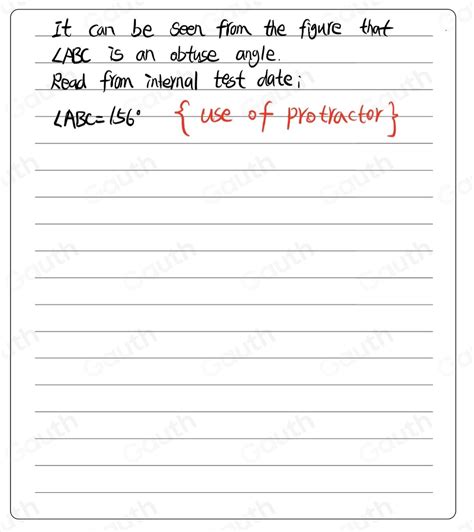 It can be seen from the figure that
∠ABC is an obtuse angle.
Read from internal test date;
∠ABC=156° { use of protractor}
Gauth
Gauth
Gauth
Gauth
Gauth
Gauth
Gauth
Gauth
Gauth